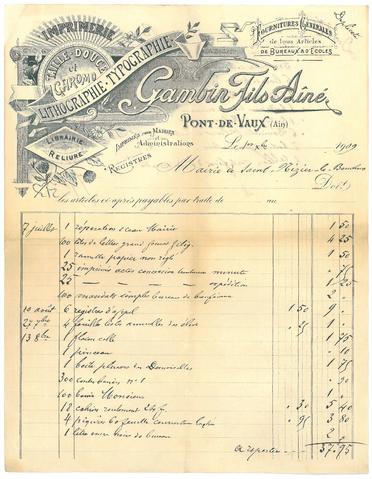 Duplicata
IMPRIMERIE
TAILLE-DOUCE
et
CHROMO
LITHOGRAPHIE-TYPOGRAPHIE
FOURNITURES GÉNÉRALES
de tous Articles
DE BUREAUX & D'ÉCOLES
Gambin Fils Aîné
PONT-DE-VAUX (Ain)
LIBRAIRIE
RELIURE
IMPRIMÉS pour MAIRIES
et
Administrations
REGISTRES
Le 1er Xbre 1909
Mairie de Saint-Nizier-le-Bouchoux
Doit
les articles ci-après payables par traite de au
7 juillet 1 réparation sceau Mairie 1 50
100 têtes de lettres grand format 4 25
1 ramette papier non réglé 1 50
25 imprimés actes concession minute . 75
25 — — — expédition 1 25
100 mandats 2 .
10 août 6 registres d'appel 1 50 9 .
27 7bre 4 feuilles listes annuelles des . 25 1 .
13 8bre 1 flacon colle 1 75
1 pinceau . 10
1 boîte plumes 1 75
300 n° 1 . 90
100 Monsieur 1 .
18 cahiers . 30 5 40
4 piqûres . 95 3 80
1 litre encre noire de bureau 2 .
à reporter 37.95